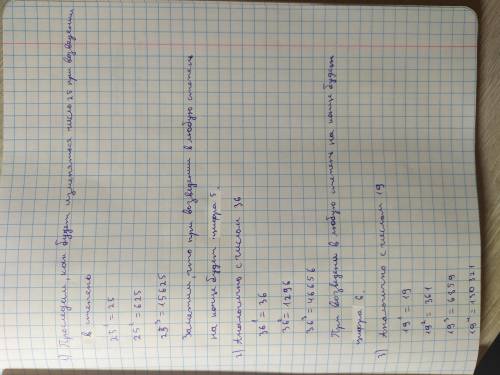 1) Проследим, как будет изменяться число 25 при возведении
в степень
25¹ = 25
25² = 625
25³ = 15625
Заметим, что при возведении в любую степень
на конце будет цифра 5.
2) Аналогично с числом 36
36¹ = 36
36² = 1296
36³ = 46656
При возведении в любую степень на конце будет
цифра 6.
3) Аналогично с числом 19
19¹ = 19
19² = 361
19³ = 6859
19⁴ = 130321